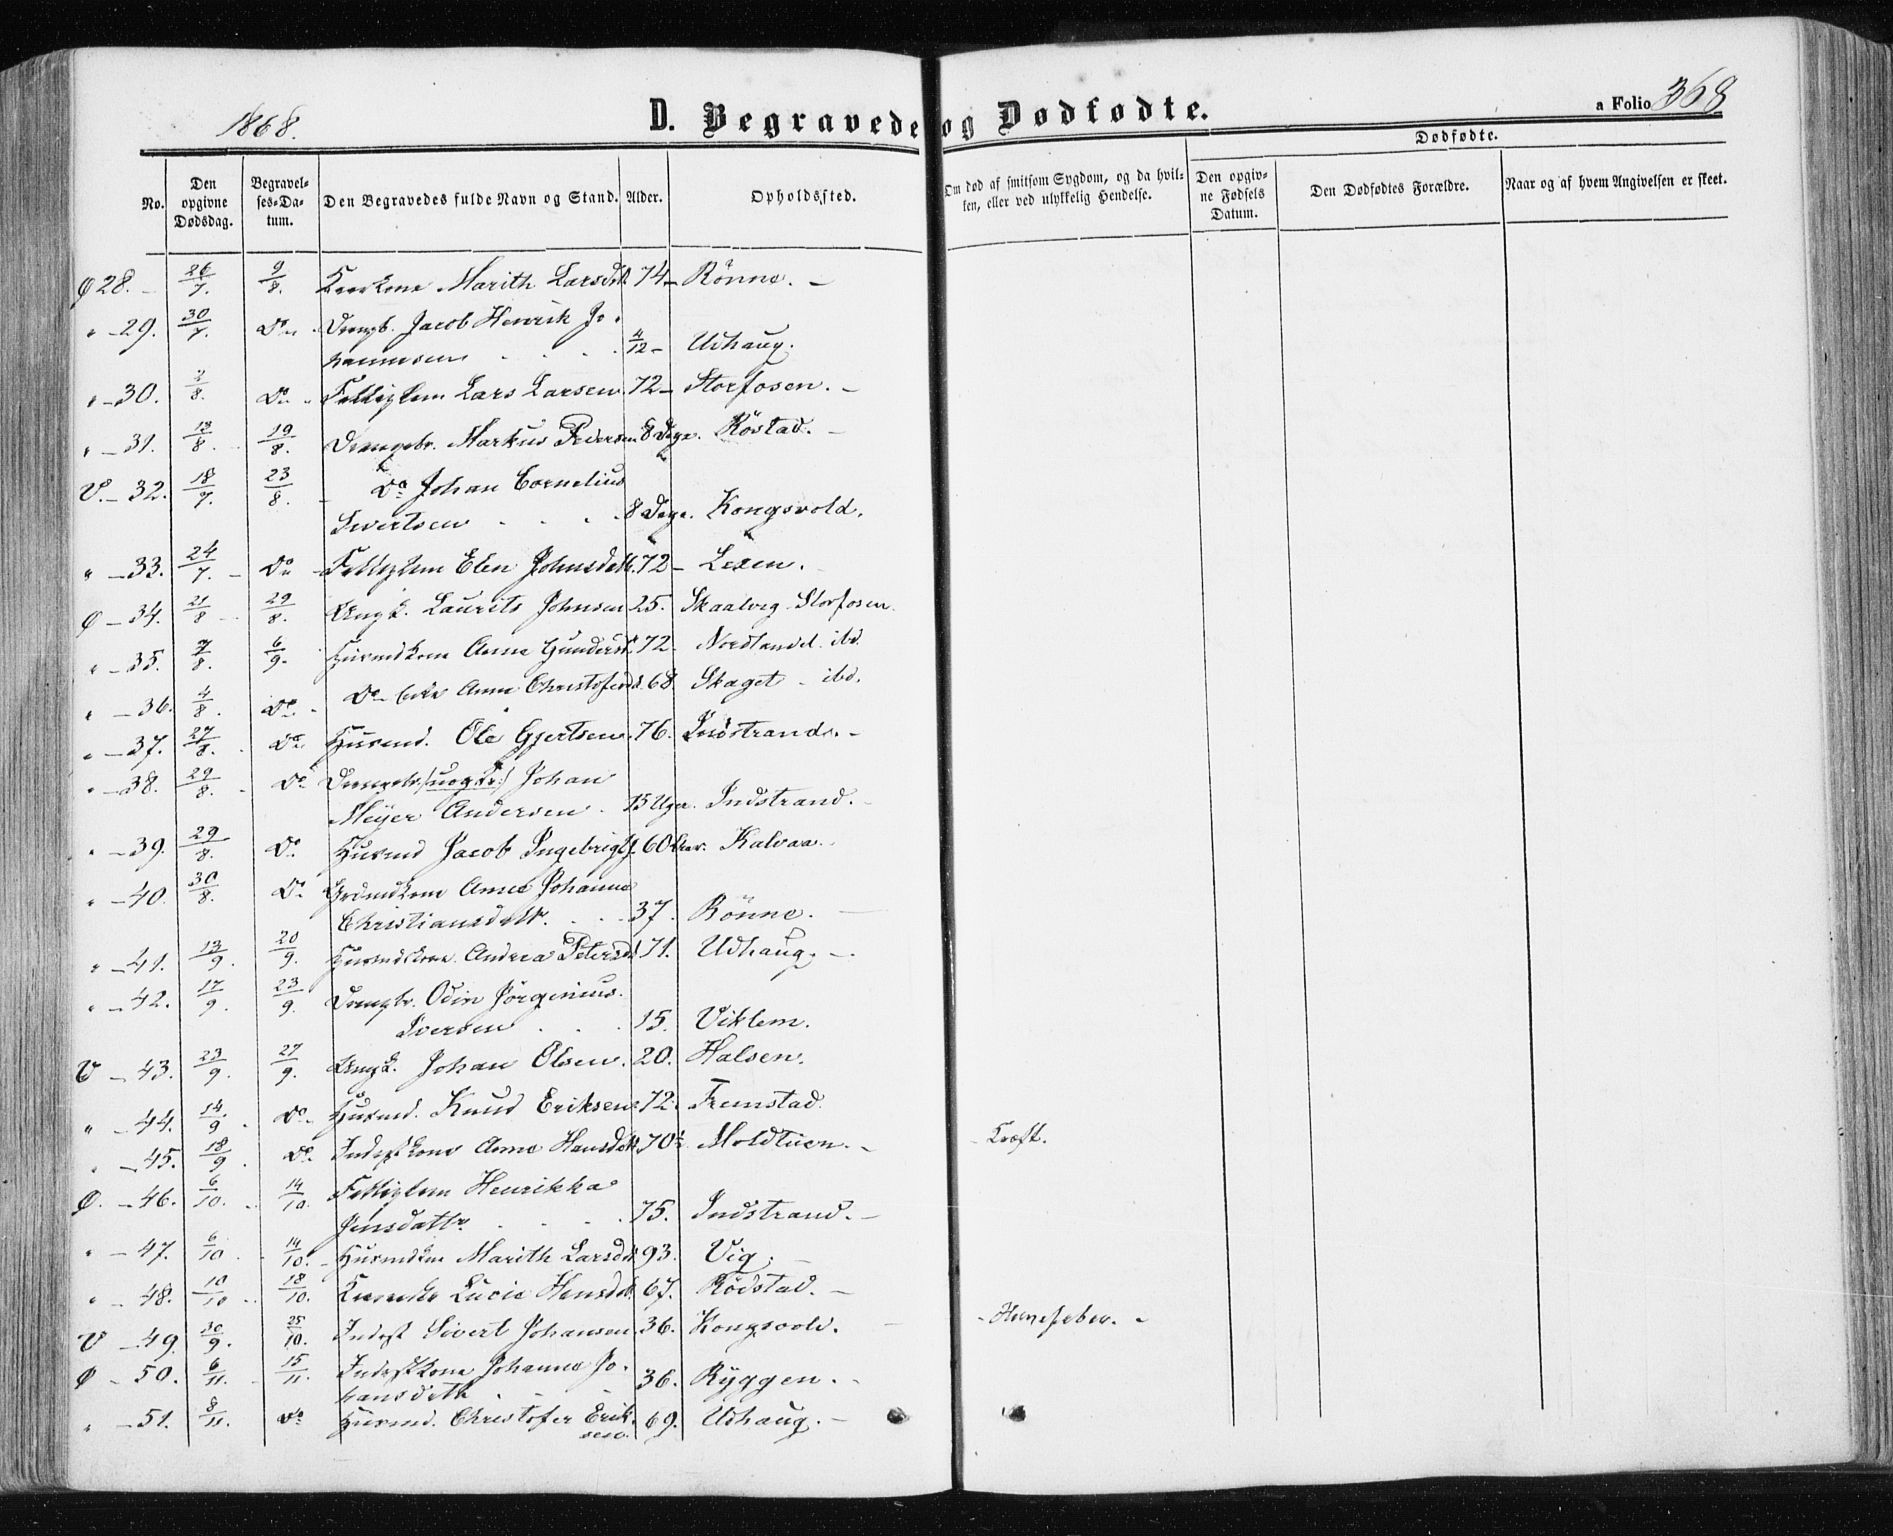 1868.
D. Begravede og Dødfødte.
a Folio 368
Dødfødte.
No.
Den opgivne Dødsdag.
Begravel- ses-Da- tum.
Den Begravedes fulde Navn og Stand.
Alder.
Opholdssted.
Om død af smitsom Sygdom, og da hvil- ken, eller ved ulykkelig Hendelse.
Den opgiv- ne Fødsels Datum.
Den Dødfødtes Forældre.
Naar og af hvem Angivelsen er skeet.
Ø 28. 26/7. 9/8. Marith Larsdtr. 74 Rönne.
" 29. 30/7. Do Drengb. Jacob Henrik Jo-
hannesen 4/12 Udhaug.
" 30. 2/8. Do Fattiglem Lars Larsen 72 Storfosen.
" 31. 13/8. 19/8. Drengebr. Markus Pedersen 8 Dage. Röstad.
V. 32. 18/7. 23/8. Do Johan Cornelius
Sivertsen 8 Dage. Kongsvold.
" 33. 24/7. Do Fattiglem Elen Johnsdtr. 72 Lexen.
Ø 34. 21/8 29/8. Ungk. Laurits Johnsen 25. Skaalvig Storfosen
" 35. 7/8. 6/9. Husmdkone Anne Gundersd. 72. Nordlandet ibd.
" 36. 4/8. Do Do Enke Anne Christofersd. 68 Skaget ibd.
" 37. 27/8. Do Husmd. Ole Gjertsen 76. Indstrand.
" 38. 29/8. Do Drengebr. Johan
Meyer Andersen 15 Uger. Indstrand.
" 39. 29/8. Do Husmd Jacob Ingebrigts. 60 Aar. Kalvaa.
" 40. 30/8. Do Grdmdkone Anne Johanna
Christiansdatr. 37. Rönne.
" 41. 13/9. 20/9. Husmdkone Andrea Petersd. 71. Udhaug.
" 42. 17/9. 23/9. Drengbr. Odin Jörginius
Iversen 15. Viklem.
V 43. 23/9. 27/9. Ungk. Johan Olsen. 20. Halsen.
" 44. 14/9 Do Husmd. Knud Eriksen 72. Fremstad.
" 45. 18/9. Do Inderstkone Anne Hansdtr. 70½ Moldtuen. Kræft.
Ø. 46. 6/10. 14/10. Fattiglem Henrikka
Jensdattr. 75. Indstrand.
" 47. 6/10 14/10. Husmdkn Marith Larsdtr. 93. Vig.
" 48. 10/10 18/10. Lucie Hansdtr. 67. Rödstad.
V 49. 30/9. 25/10. Inderst Sivert Johansen 36. Kongsvold.
Ø 50. 6/11. 15/11. Inderstkone Johanna Jo-
hansdatr. 36. Ryggen.
" 51. 8/11. Do Husmd. Christofer Erik-
sen. 69. Udhaug.